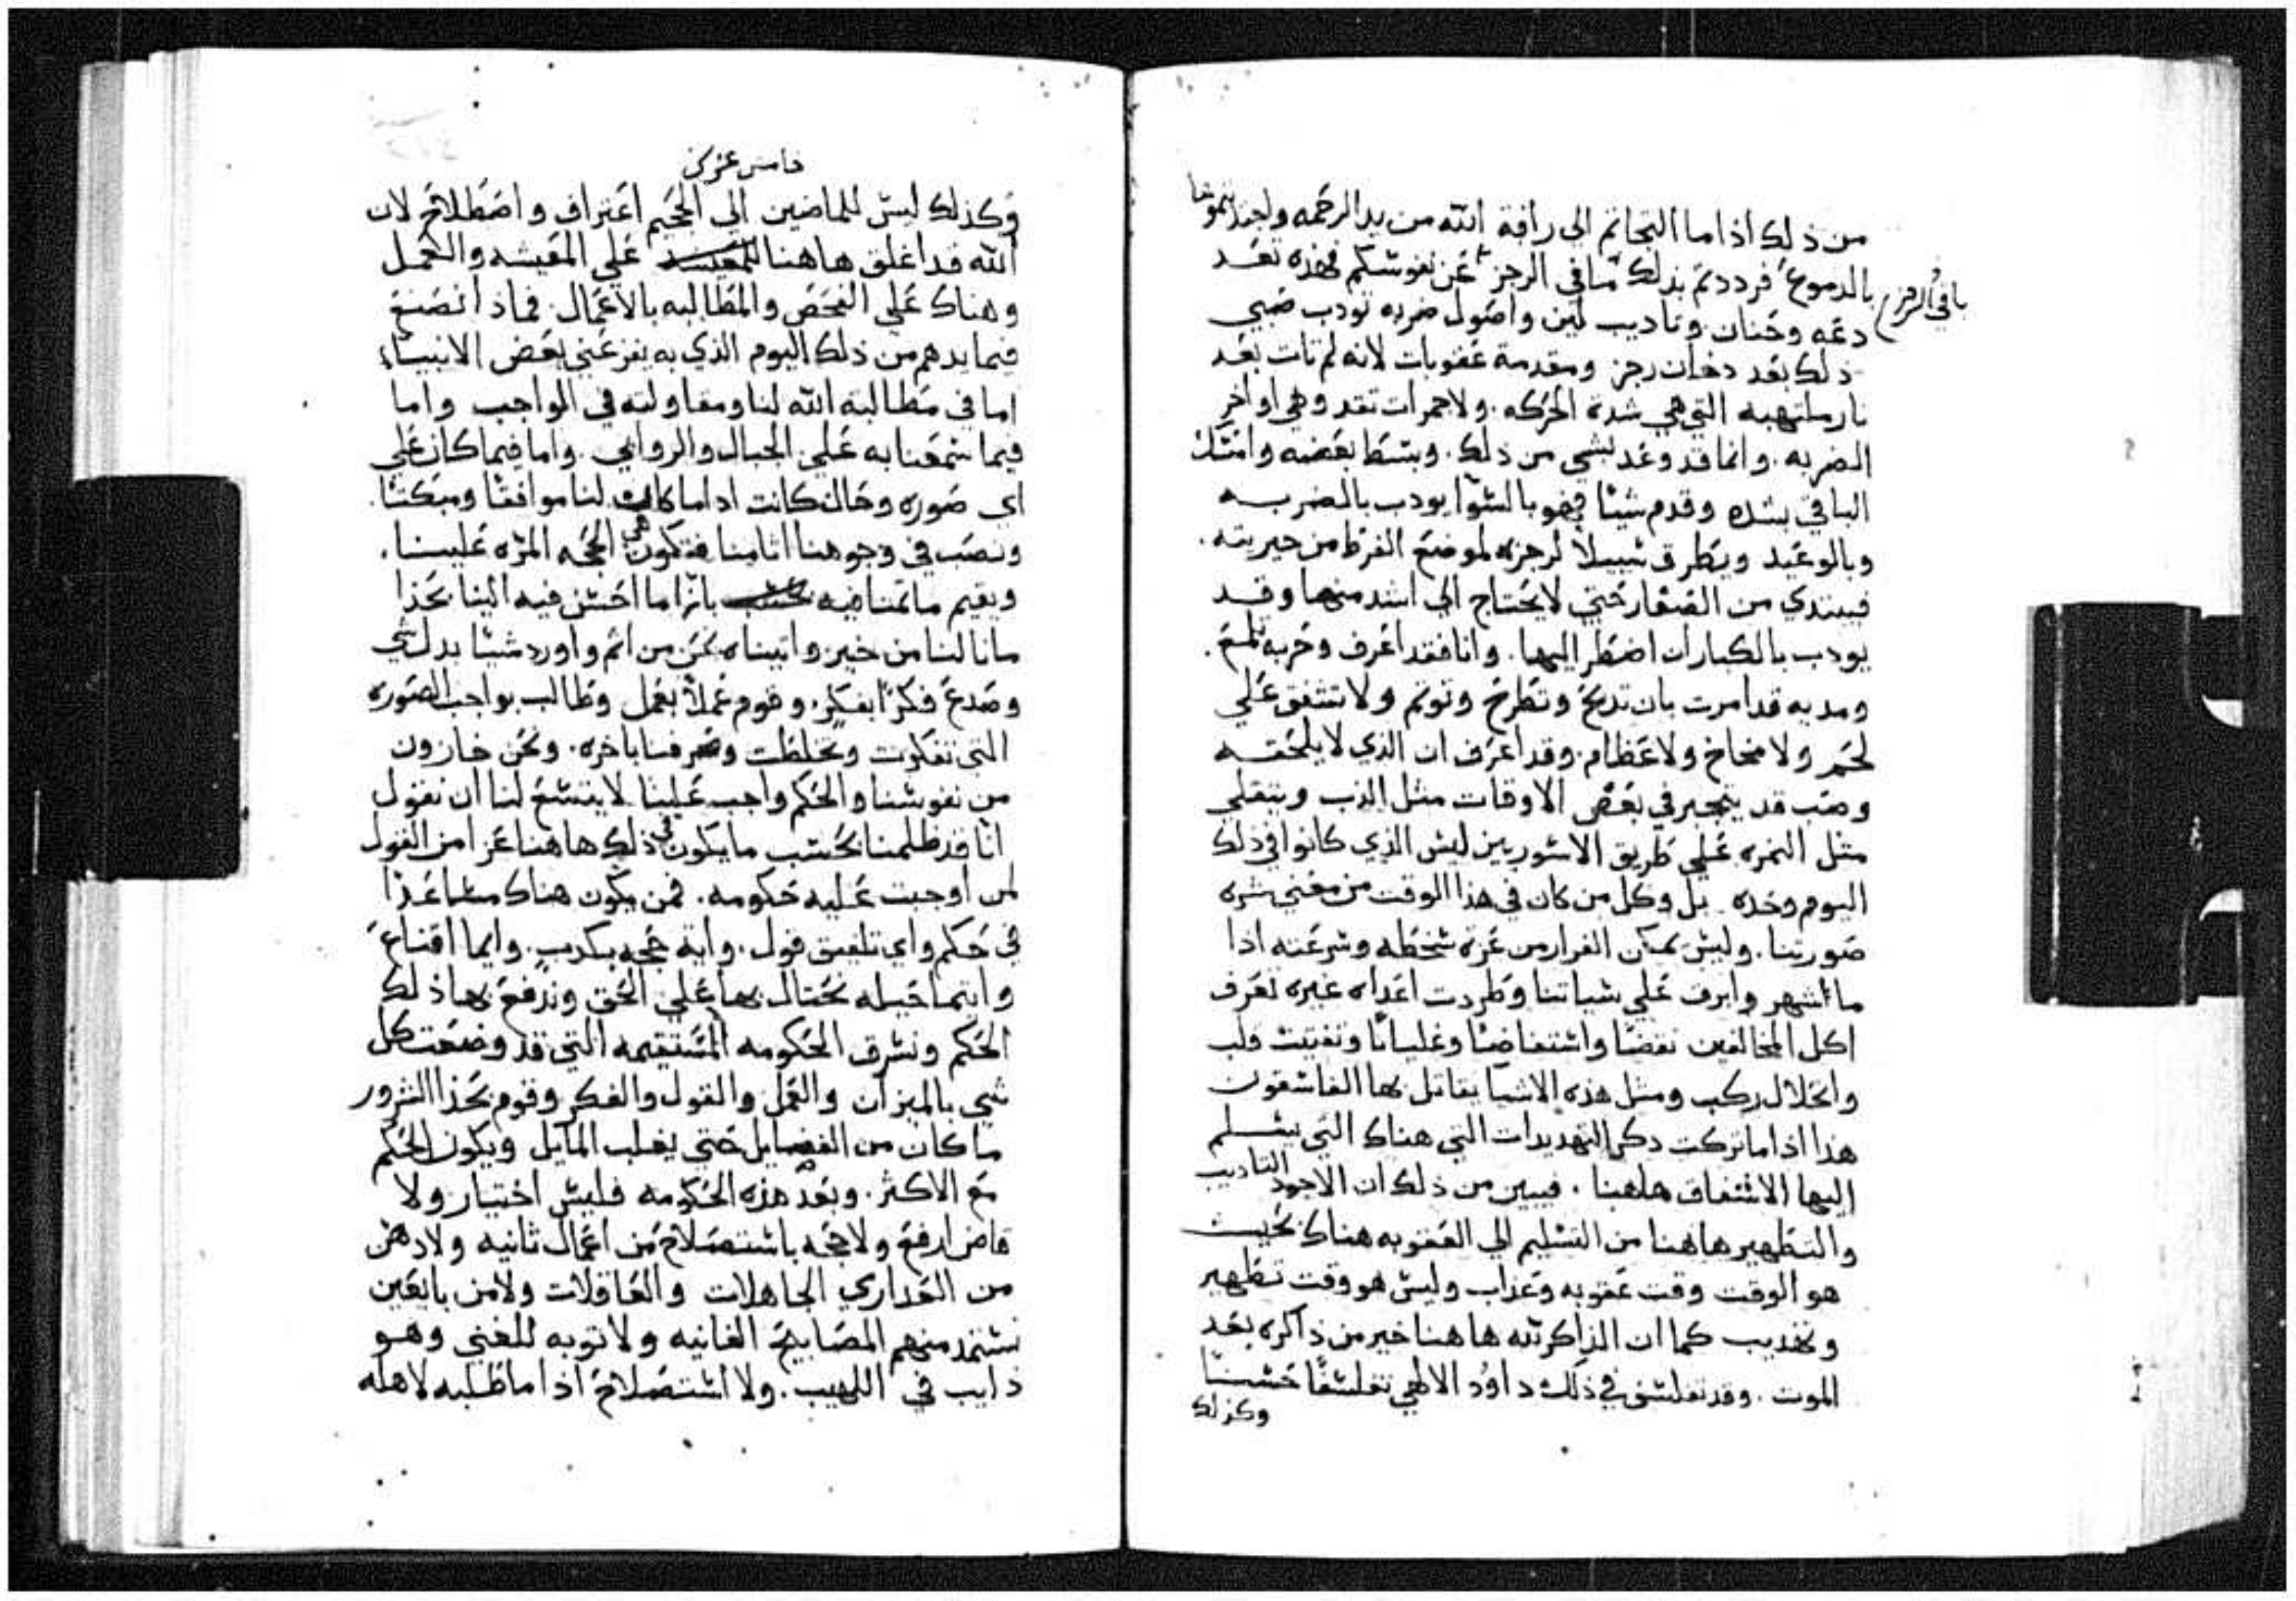 من ذلك اذا ما التجاتم الى رافة الله من يد الرحمه ولجتدبتموها
بالدموع فرددتم بذلك ما في الرجز عن نفوشكم فهذه تعد
باقي الرجز
دعه وحنان وتاديب لين واصول ضربه تودب صبي
ذلك بعد دخان رجز ومقدمة عقوبات لانه لم تات بعد
نار ملتهبه التي هي شدة الحركه. ولا جمرات تقد وهي اواخر
الضربه. وانما قد وعد بشي من ذلك. وبسط بعضه وامتشك
الباقي بشده وقدم شيئا فهو بالسوا يودب بالضربه
وبالوعيد ويطرق شبيلا لرجزه لموضع الفرط من خيريته.
فيبتدي من الصغار حتي لا يحتاج الي اشد منها وقد
يودب بالكبار ان اضطر اليها. وانا فقد اعرف وحربه تلمع.
ومديه قد امرت بان تدبح وتطرح وتوتم ولا تشفق علي
لحم ولا مخاخ ولا عظام. وقد اعرف ان الذي لا يلحقه
وصب قد يتجبر في بعض الاوقات مثل الذب ويتقلي
مثل النمره علي طريق الاشوريين ليش الذي كانوا في ذلك
اليوم وحده. بل وكل من كان في هذا الوقت من معني شره
صورتنا. وليش يمكن الفرار من عزة شخطه وشرعته اذا
ما اشهر وابرق علي شياتنا وطردت اعداه غيره تعرف
اكل المخالفين نفضا واشتفاضا وغليانا وتفتيت قلب
وانحلال ركب ومثل هذه الاشيا يقاتل بها الفاشقون
هذا اذا ما تركت دكر التهديدات التي هناك التي يشلم
اليها الاشفاق هاهنا. فيبين من ذلك ان الاجود التاديب
والتطهير هاهنا من التشليم الي العقوبه هناك بحيث
هو الوقت وقت عقوبه وعذاب وليش هو وقت تطهير
وتهديب كما ان الذاكر لله هاهنا خير من ذاكره بعد
الموت. وقد تفلشف في ذلك داوود الالاهي تفلشفا حشنا
وكذلك
خامس عشر كر
وكذلك ليش للماضين الي الجحيم اعتراف واصطلاح لان
الله قد اغلق هاهنا علي المعيشه والعمل
وهناك علي الفحص والمطالبه بالاعمال. فماذا نصنع
فيما يدهم من ذلك اليوم الذي به يفزعني بعض الانبياء
اما في مطالبة الله لنا ومقاولته في الواجب واما
فيما شمعنا به علي الجبال والروابي. واما فيما كان علي
اي صوره وحال كانت اذا ما كان لنا موافقا ومبكتا.
ونصب في وجوهنا اثامنا فتكون هي الحجه المره علينا.
ويقيم ما تمنا فيه بازا ما احشن فيه الينا بحذا
ما نالنا من خير واتيناه نحن من اثم واورد شيئا بدل شي
وصدع فكرا بفكر. وقوم عملا بعمل وطالب بواجب الصوره
التي تفكرت وتخلطت وصرفنا باخره. ونحن خازون
من نفوشنا والحكم واجب علينا لا يتشع لنا ان نقول
انا قد ظلمنا بحسب ما يكون في ذلك هاهنا عزا من القول
لمن اوجبت عليه حكومه. فمن يكون هناك مشاعدا
في حكم واي تلفيق قول. واية حجه بكدب. وايما اقناع
وايتما حيله نحتال بها علي الحق وندفع بها ذلك
الحكم ونشرق الحكومه المستقيمه التي قد وضعت كل
شي بالميزان والعمل والقول والفكر وقوم بحذا الشرور
ما كان من الفضايل حتي يغلب المايل ويكون الحكم
مع الاكثر. وبعد هذه الحكومه فليش اختيار ولا
قاض ارفع ولا حجه باشتصلاح من اعمال ثانيه ولا دهن
من العداري الجاهلات والعاقلات ولا من بايعين
نشتمد منهم المصابيح الفانيه ولا توبه للغني وهو
ذايب في اللهيب. ولا اشتصلاح اذا ما طلبه لاهله